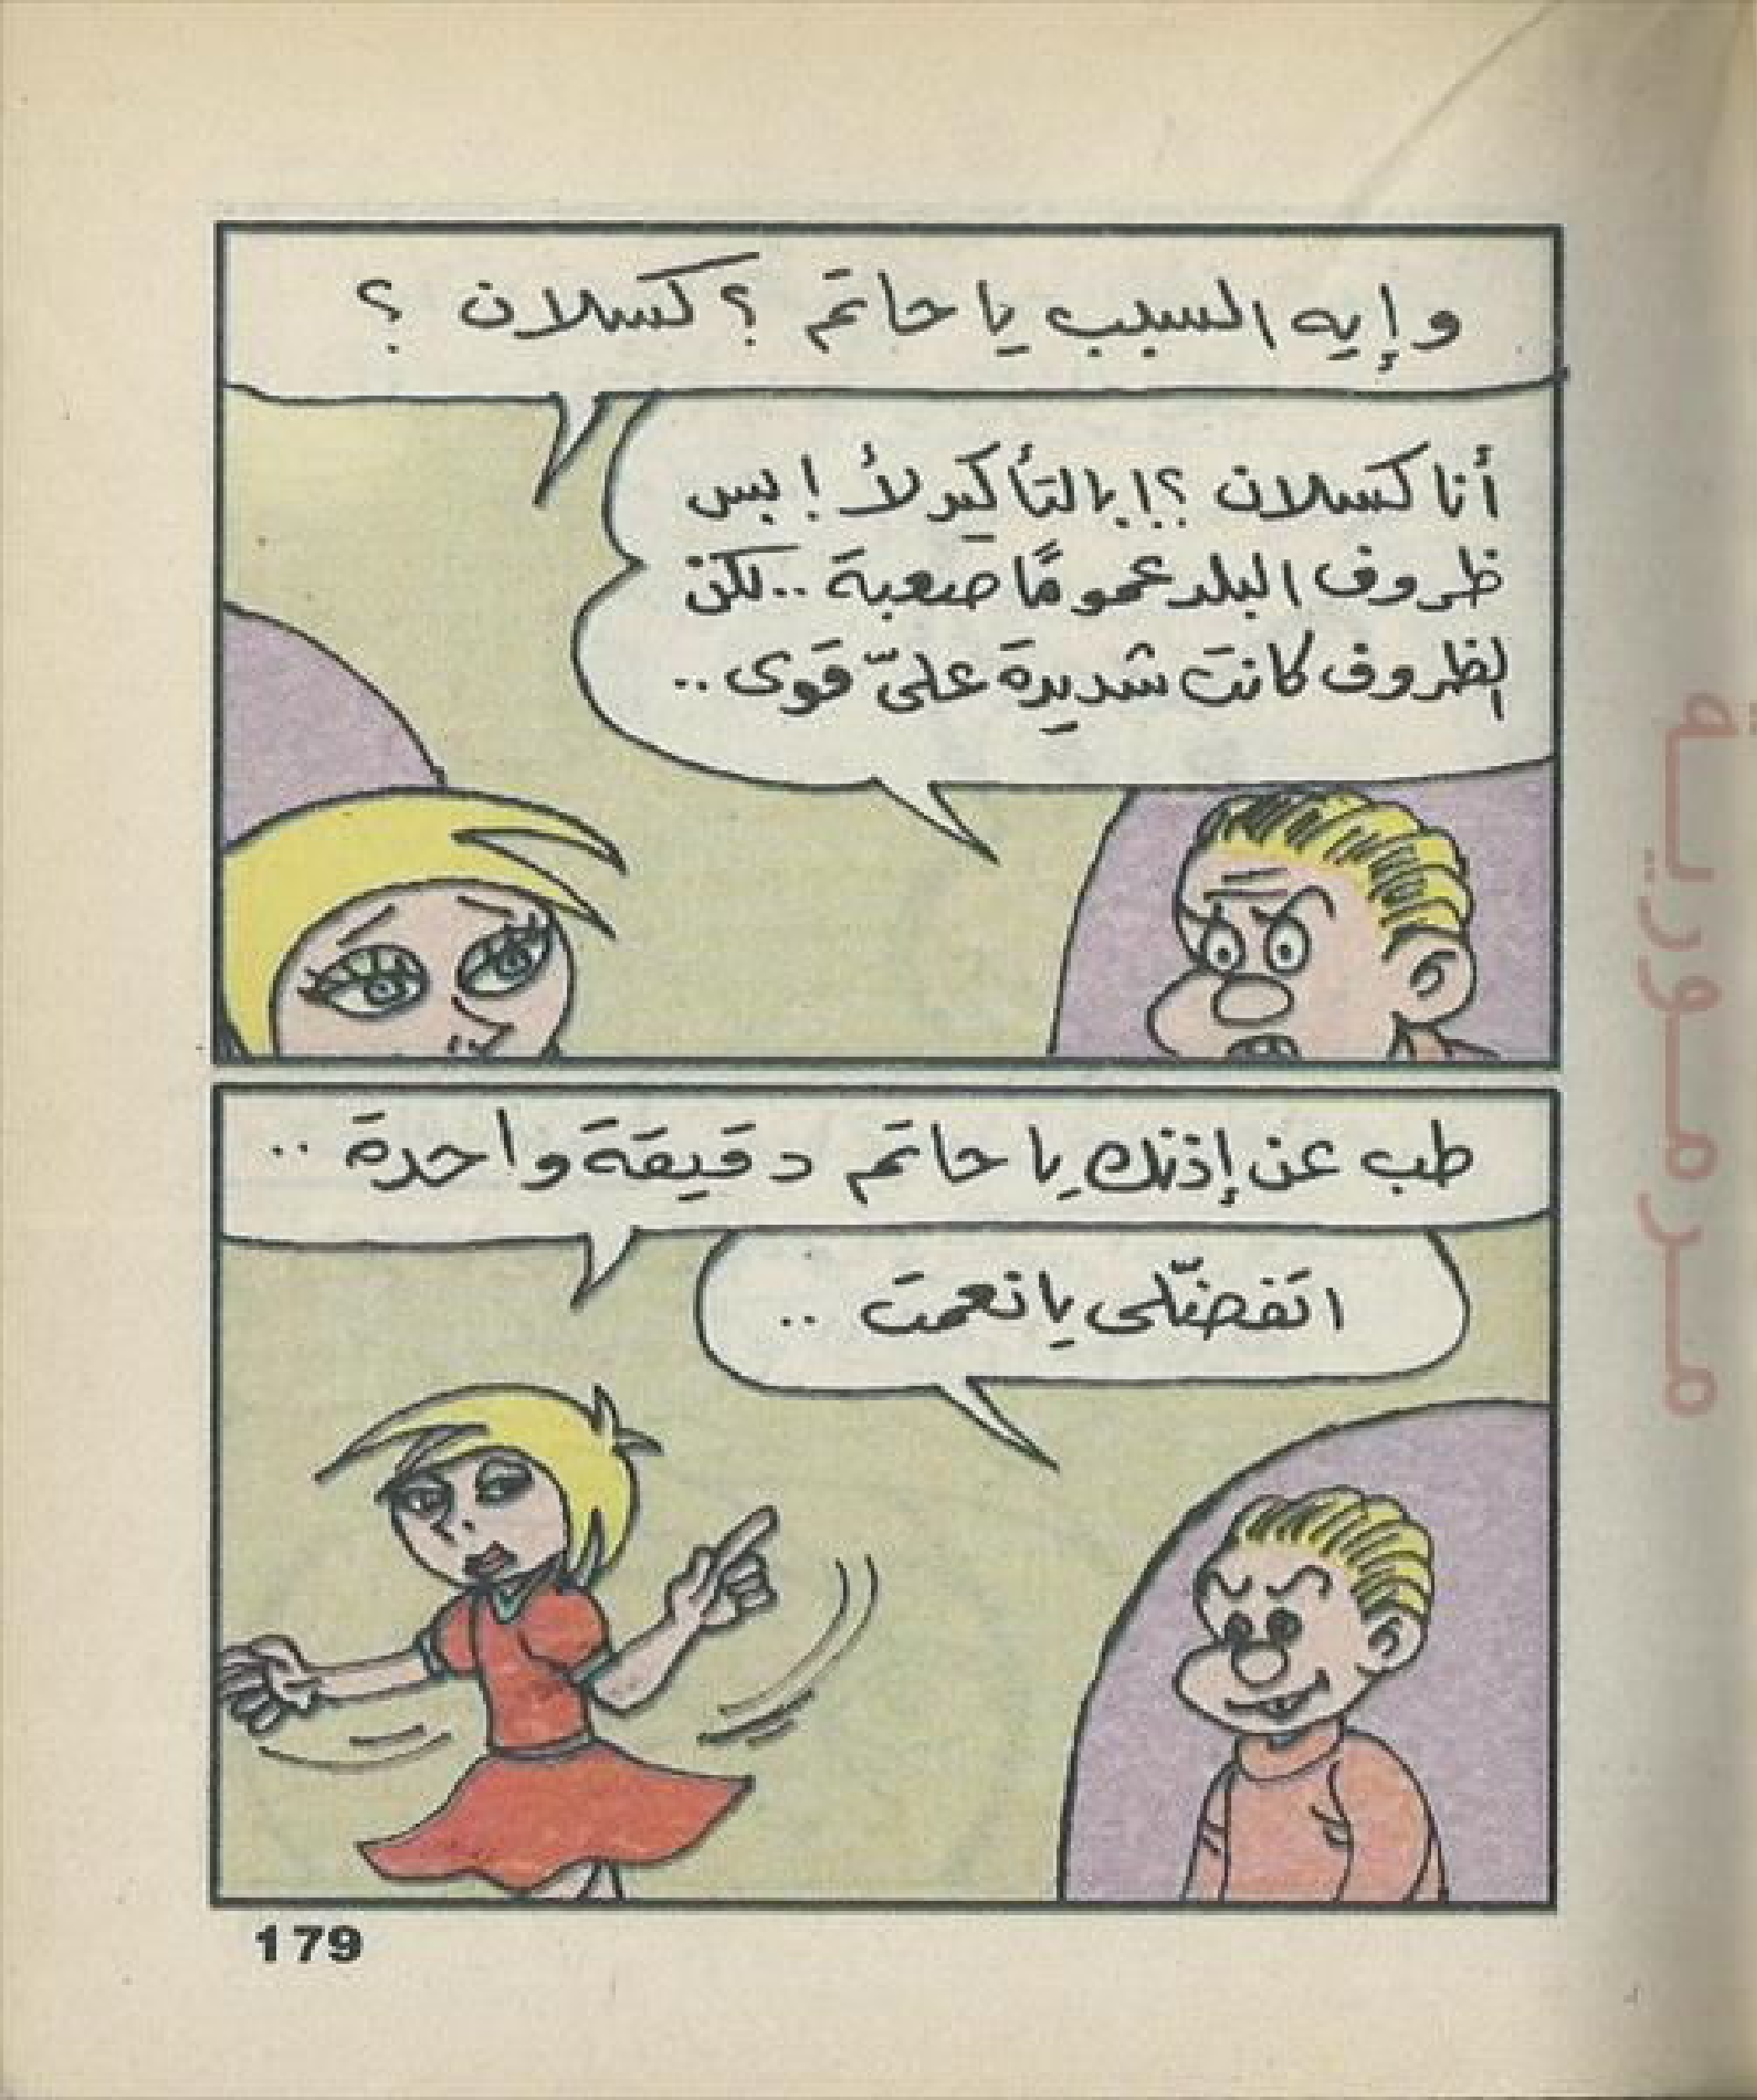 وإيه السبب يا حاتم ؟ كسلان ؟
أنا كسلان ؟! بالتأكيد لأ ! بس
ظروف البلد عمومًا صعبة .. لكن
لظروف كانت شديدة علىّ قوى ..
طب عن إذنك يا حاتم دقيقة واحدة ..
اتفضّلى يا نعمت ..
179
مرمورية